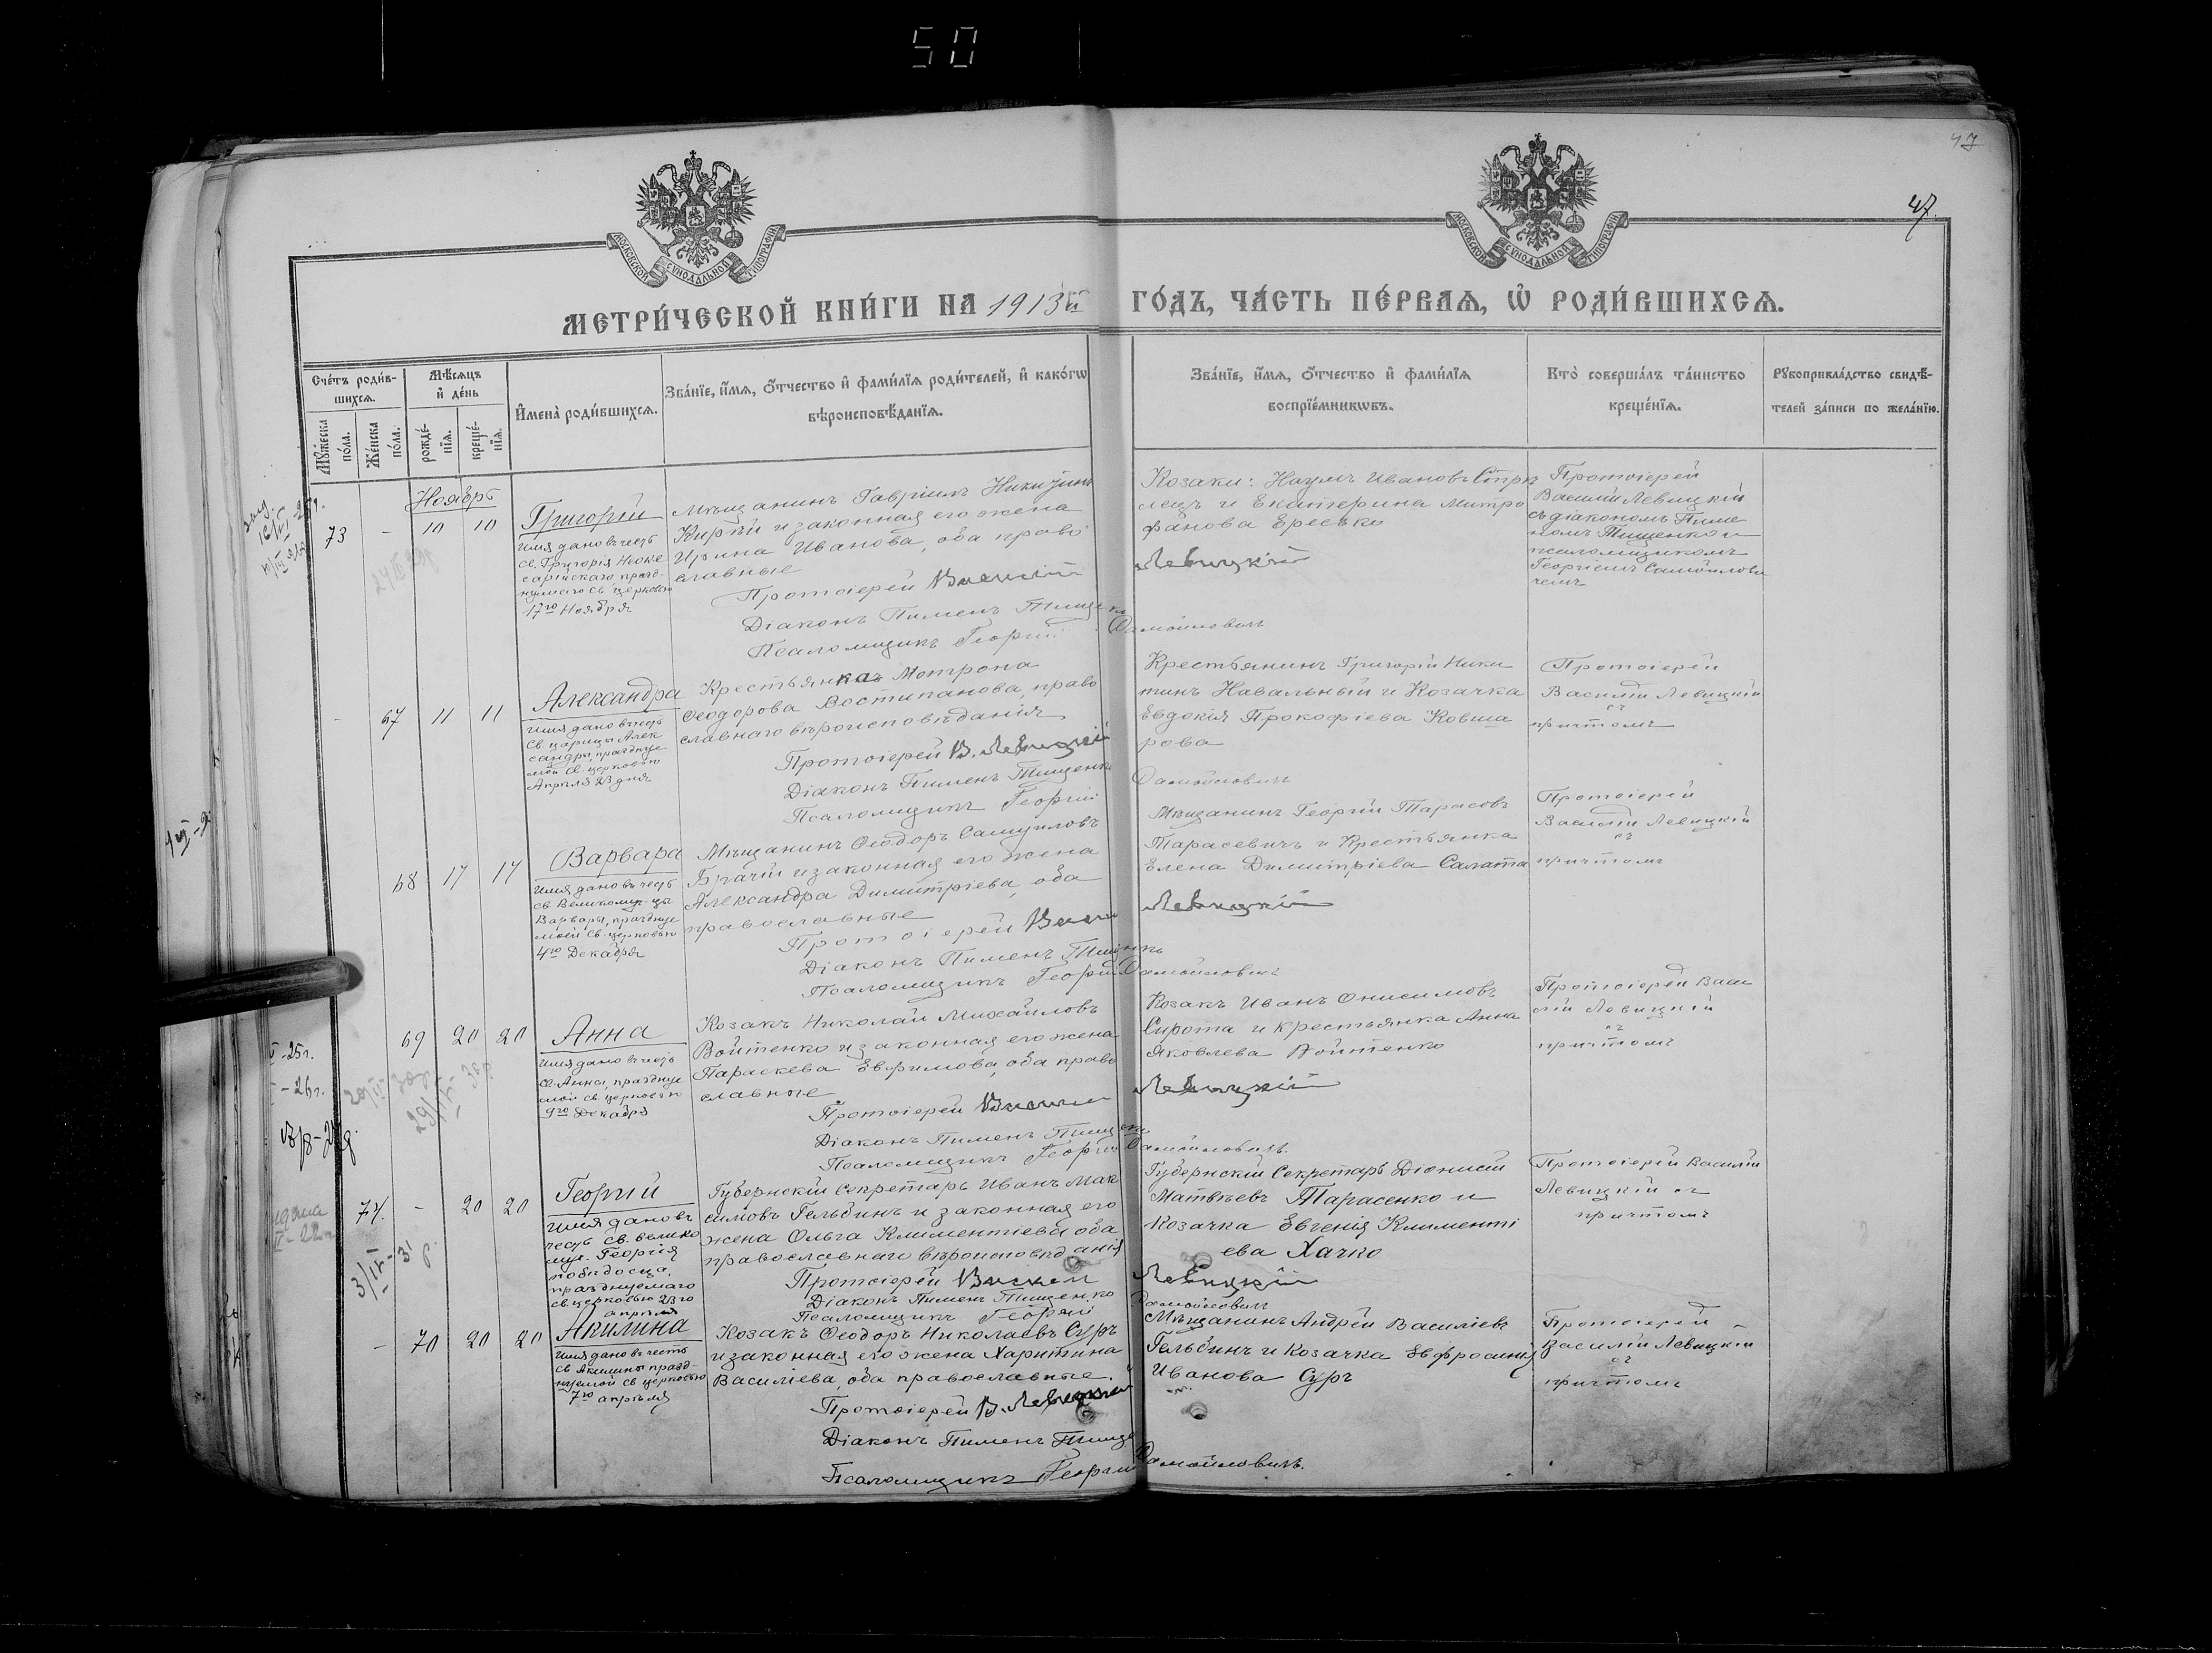 50
47
47.
МОСКОВСКОЙ СУНОДАЛЬНОЙ ТИПОГРАФІИ
МОСКОВСКОЙ СУНОДАЛЬНОЙ ТИПОГРАФІИ
МЕТРИ́ЧЕСКОЙ КНИ́ГИ НА 1913й ГО́ДЪ, ЧА́СТЬ ПЕ́РВАѦ, Ѡ҆ РОДИ́ВШИХСѦ.
Сче́тъ роди́вшихсѧ.
Мꙋ́жеска по́ла.
Же́нска по́ла.
Мѣ́сѧцъ и҆ де́нь
рожде́нїѧ.
креще́нїѧ.
И҆мена̀ роди́вшихсѧ.
Зва́нїе, и҆́мѧ, ѻ҆́тчество и҆ фами́лїѧ роди́телей, и҆ како́гѡ
вѣроисповѣ́данїѧ.
Зва́нїе, и҆́мѧ, ѻ҆́тчество и҆ фами́лїѧ
воспрїе́мникѡвъ.
Кто̀ соверша́лъ та́инство
креще́нїѧ.
Рꙋкоприкла́дство свидѣ́-
телей за́писи по жела́нїю.
Ноябрь
73 - 10 10
Григорій
имя дано въ честь
св. Григорія Неоке
сарійскаго празд-
нуемаго св. церковью
17го Ноября
Мѣщанинъ Гавріилъ Никитинъ
Кирѣй и законная его жена
Ирина Иванова, оба право
славные
Протоіерей Василій Левицкій
Діаконъ Пименъ Тищенко
Псаломщикъ Георгій Самойловичъ
Козаки: Наумъ Ивановъ Стрѣ
лецъ и Екатерина Митро
фанова Ересько
Протоіерей
Василій Левицкій
съ діакономъ Пиме
номъ Тищенко и
псаломщикомъ
Георгіемъ Самойлови
чемъ
- 67 11 11
Александра
имя дано въ честь
св. царицы Алек
сандры, празднуе
мой св. церковью
Апрѣля 23 дня
Крестьянка Мотрона
Ѳеодорова Востипанова, право
славнаго вѣроисповѣданія
Протоіерей В. Левицкій
Діаконъ Пименъ Тищенко
Псаломщикъ Георгій Самойловичъ
Крестьянинъ Григорій Ники
тинъ Навальный и Козачка
Евдокія Прокофіева Ковша
рова
Протоіерей
Василій Левицкій
съ
причтомъ
68 17 17
Варвара
имя дано въ честь
св. Великомуч-цы
Варвары, празднуе
мой св. церковью
4го Декабря
Мѣщанинъ Ѳеодоръ Самуиловъ
Брачій и законная его жена
Александра Димитріева, оба
православные
Протоіерей Василій Левицкій
Діаконъ Пименъ Тищенко
Псаломщикъ Георгій Самойловичъ
Мѣщанинъ Георгій Тарасовъ
Тарасевичъ и Крестьянка
Елена Димитріева Салата
Протоіерей
Василій Левицкій
съ
причтомъ
69 20 20
Анна
имя дано въ честь
св. Анны, празднуе
мой св. церковью
9го Декабря
Козакъ Николай Михайловъ
Войтенко и законная его жена
Параскева Евфимова, оба право
славные
Протоіерей Василій Левицкій
Діаконъ Пименъ Тищенко
Псаломщикъ Георгій Самойловичъ.
Козакъ Иванъ Онисимовъ
Сирота и крестьянка Анна
Яковлева Войтенко
Протоіерей Васи
лій Левицкій
съ
причтомъ
74. - 20 20
Георгій
имя дано въ
честь св. велико
муч. Георгія
побѣдосца,
празднуемаго
св. церковью 23го
апрѣля
Губернскій Секретарь Иванъ Мак
симовъ Гельбинъ и законная его
жена Ольга Климентіева оба
православнаго вѣроисповѣданія
Протоіерей Василій Левицкій
Діаконъ Пименъ Тищенко
Псаломщикъ Георгій Самойловичъ
Губернскій Секретарь Діонисій
Матвѣевъ Тарасенко и
Козачка Евгенія Клименті
ева Хачко
Протоіерей Василій
Левицкій съ
причтомъ
- 70 20 20
Акилина
имя дано въ честь
св. Акилины празд-
нуемой св. церковью
7го апрѣля
Козакъ Ѳеодоръ Николаевъ Суръ
и законная его жена Харитина
Василіева, оба православные.
Протоіерей В. Левицкій
Діаконъ Пименъ Тище
Псаломщикъ Георгій Самойловичъ.
Мѣщанинъ Андрей Василіевъ
Гельбинъ и Козачка Евфросинія
Иванова Суръ
Протоіерей
Василій Левицкій
съ
причтомъ